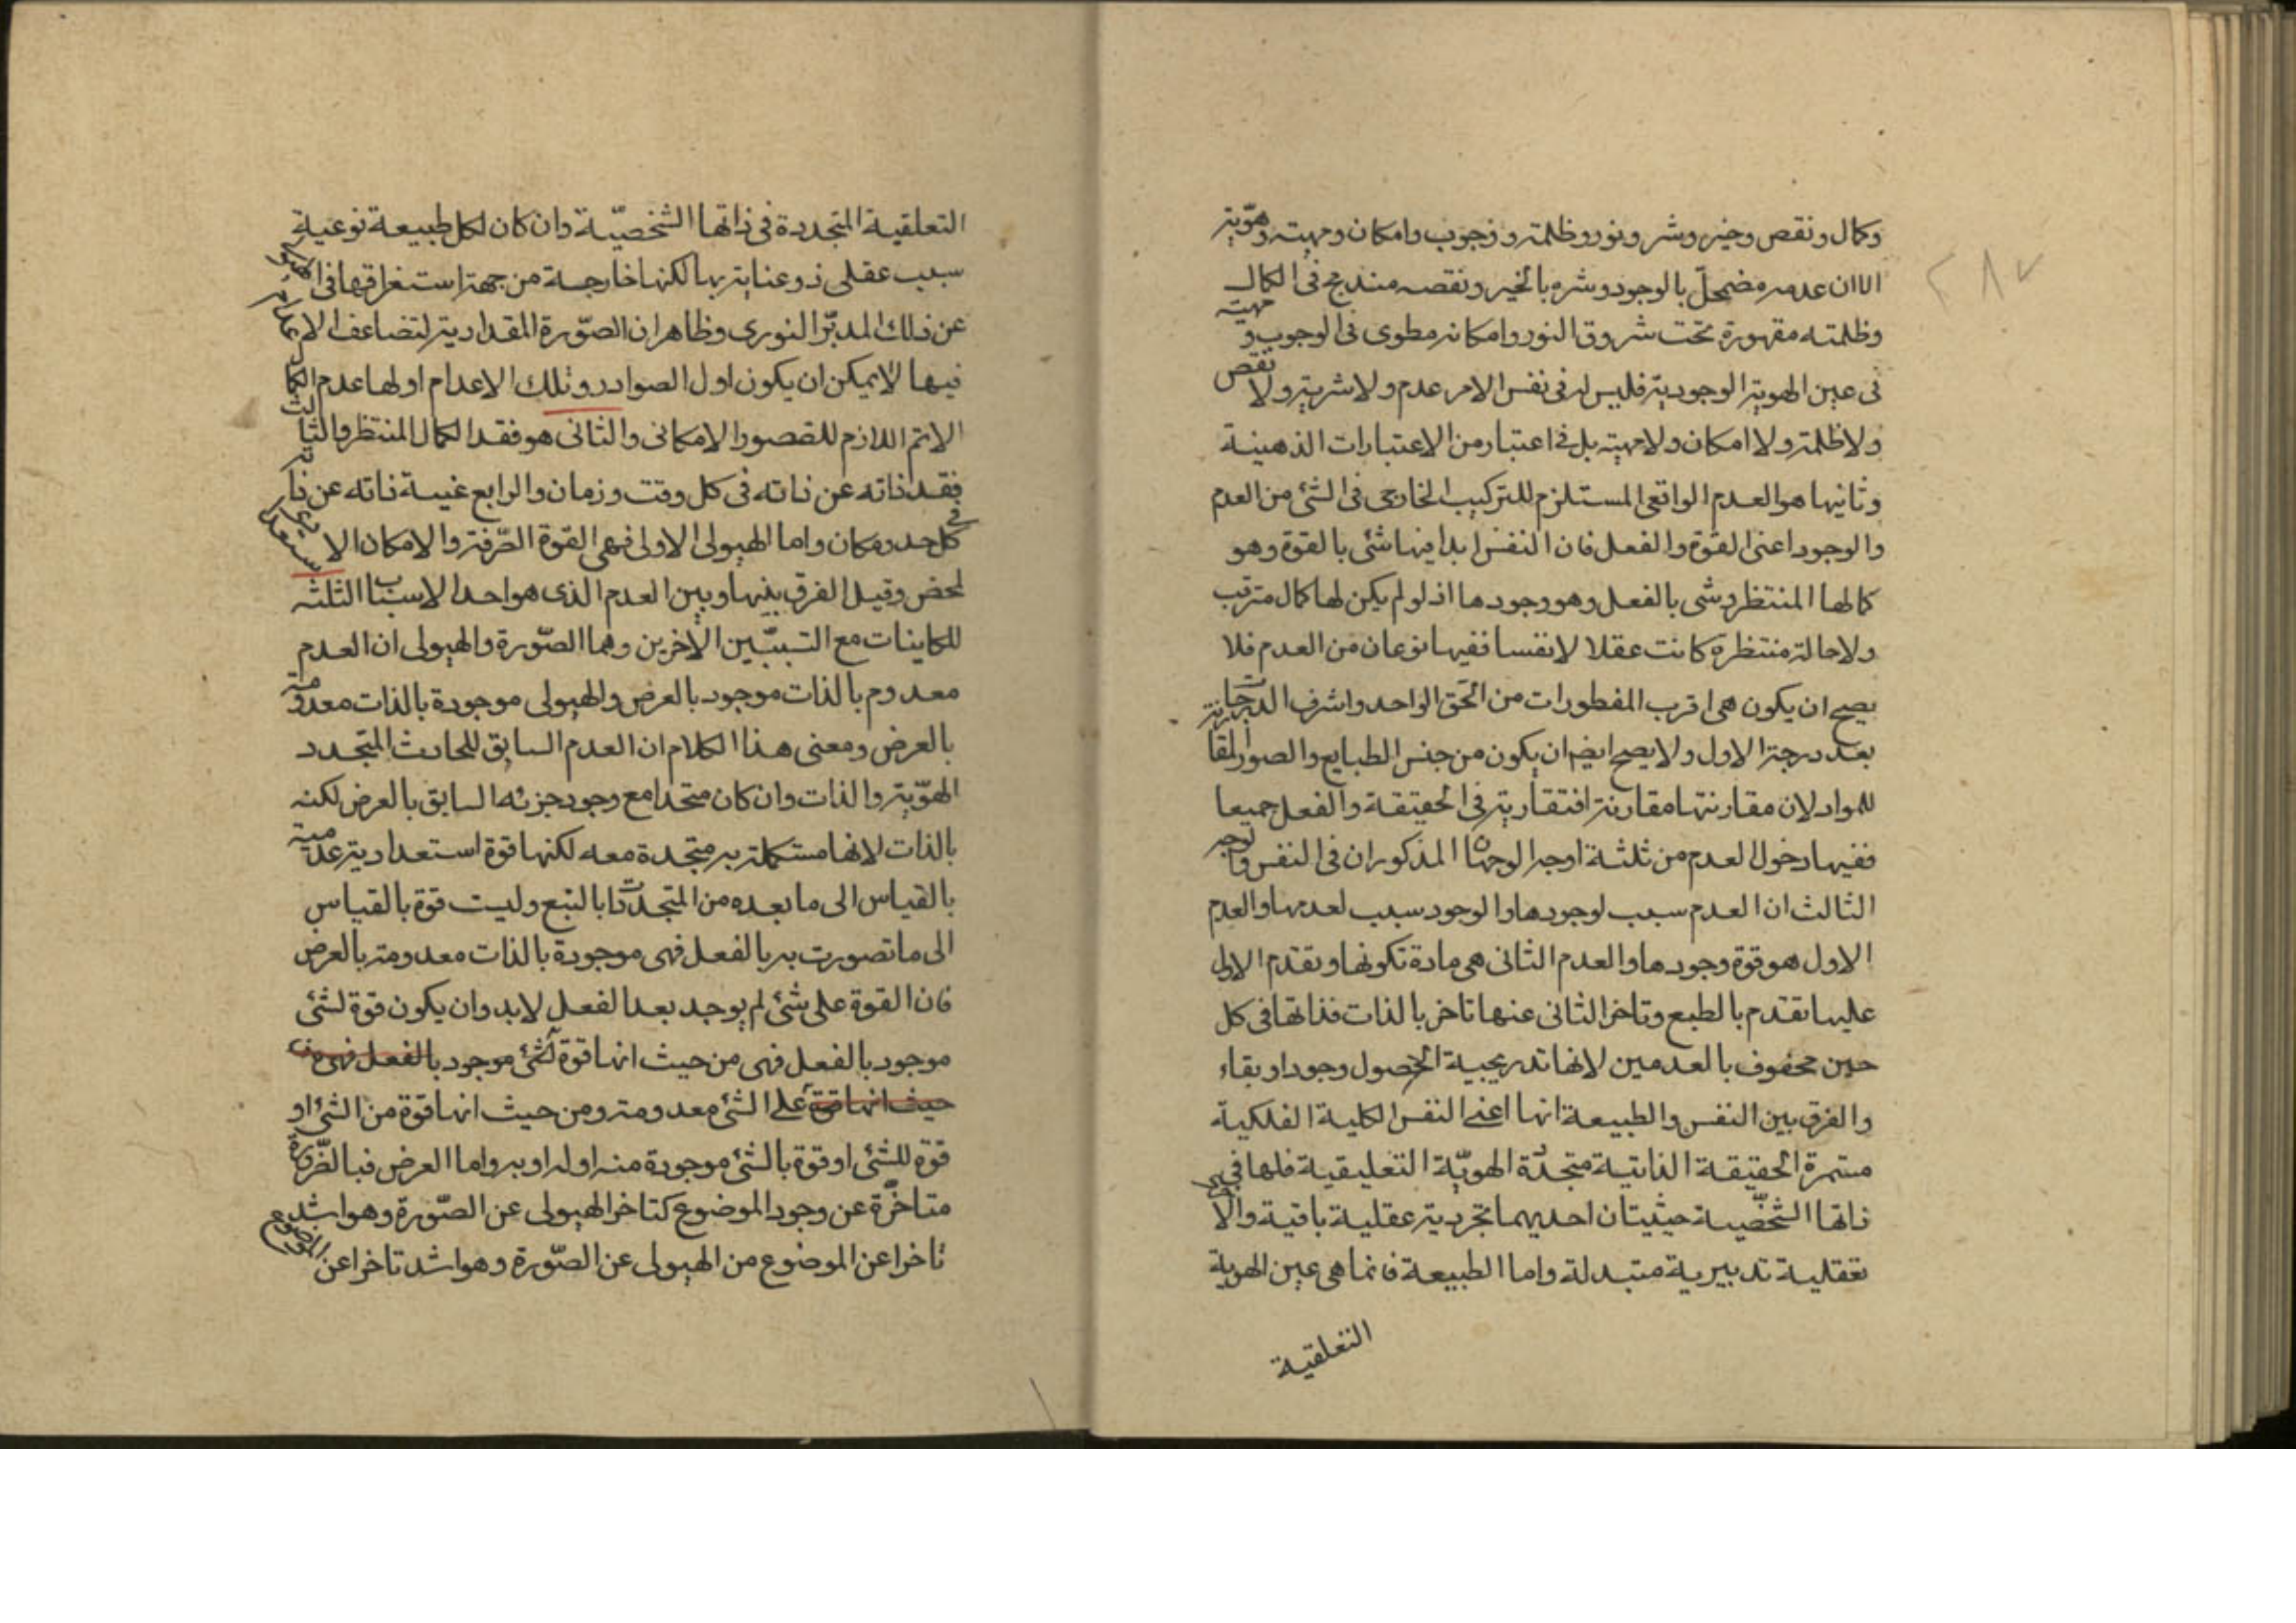 وكمال ونقص وخير وشر ونور وظلمة ووجوب وامكان ومهيته وهوّية
الا ان عدمه مضمحلّ بالوجود وشره بالخير ونقصه مندمج فى الكمال
وظلمته مقهورة تحت شروق النور وامكانه مطوى فى الوجوب ومهيته
فى عين الهوية الوجودية فليس له فى نفس الامر عدم ولا شرية ولا نقص
ولا ظلمة ولا امكان ولا مهية بل فى اعتبار من الاعتبارات الذهنية
وثانيها هو العدم الواقعى المستلزم للتركيب الخارجى فى الشئ من العدم
والوجود اعنى القوة والفعل فان النفس ابدا فيها شئ بالقوة وهو
كمالها المنتظر وشى بالفعل وهو وجودها اذ لو لم يكن لها كمال مترقب
ولا حالة منتظرة كانت عقلا لا نفسا ففيها نوعان من العدم فلا
يصح ان يكون هى اقرب المفطورات من الحق الواحد واشرف الدرجات
بعد درجة الاول ولا يصح ايضا ان يكون من جنس الطبايع والصور المقارنة
للمواد لان مقارنتها مقارنة افتقارية فى الحقيقة والفعل جميعا
ففيها دخول العدم من ثلثة اوجه الوجهان المذكوران فى النفس والوجه
الثالث ان العدم سبب لوجودها والوجود سبب لعدمها والعدم
الاول هو قوة وجودها والعدم الثانى هى مادة تكونها وتقدم الاول
عليها تقدم بالطبع وتاخر الثانى عنها تاخر بالذات فذاتها فى كل
حين محفوف بالعدمين لانها تدريجية الحصول وجودا وبقاء
والفرق بين النفس والطبيعة انها اعنى النفس الكلية الفلكية
مستمرة الحقيقة الذاتية متجددة الهويّة التعليقية فلها فى
ذاتها الشخصّية حيثيتان احديهما تجردية عقلية باقية والاخرى
تعقلية تدبيرية متبدلة واما الطبيعة فانما هى عين الهوية
التعلقية
٢٨٧
التعلقية المتجددة فى ذاتها الشخصيّة وان كان لكل طبيعة نوعية
سبب عقلى ذو عناية بها لكنها خارجة من جهة استغراقها فى الهيولى
عن ذلك المدبّر النورى وظاهر ان الصّورة المقدارية لتضاعف الاعدام
فيها لا يمكن ان يكون اول الصوادر وتلك الاعدام اولها عدم الكمال
الاتم اللازم للقصور الامكانى والثانى هو فقد الكمال المنتظر والثالث
فقد ذاته عن ذاته فى كل وقت وزمان والرابع غيبة ذاته عن ذاته
فى كل حد ومكان واما الهيولى الاولى فهى القوة الصّرفة والامكان الاستعدادى
لمحض وقيل الفرق بينها وبين العدم الذى هو احد الاسباب الثلثه
للكاينات مع السّببين الاخرين وهما الصّورة والهيولى ان العدم
معدوم بالذات موجود بالعرض والهيولى موجودة بالذات معدومة
بالعرض ومعنى هذا الكلام ان العدم السابق للحادث المتجدد
الهوّية والذات وان كان متحدا مع وجود جزئه السابق بالعرض لكنه
بالذات لانها مستكملة به متجددة معه لكنها قوة استعدادية عدمية
بالقياس الى ما بعده من المتجددات بالتبع وليست قوة بالقياس
الى ما تصورت به بالفعل فهى موجودة بالذات معدومة بالعرض
فان القوة على شئ لم يوجد بعد الفعل لا بد وان يكون قوة لشئ
موجود بالفعل فهى من حيث انها قوة لشئ موجود بالفعل فهى من
حيث انها قوة على الشئ معدومة ومن حيث انها قوة من الشئ او
قوة للشئ او قوة بالشئ موجودة منه او له او به واما العرض فبالضّرورة
متاخّرة عن وجود الموضوع كتاخر الهيولى عن الصّورة وهو اشد
تاخرا عن الموضوع من الهيولى عن الصّورة وهو اشد تاخرا عن الموضوع